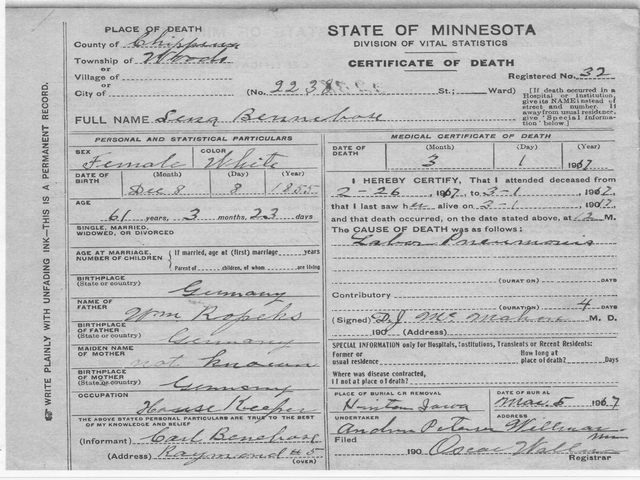 PLACE OF DEATH
County of Chippewa
Township of Woods
or
Village of
or
City of
(No. 2238 St.; Ward)
STATE OF MINNESOTA
DIVISION OF VITAL STATISTICS
CERTIFICATE OF DEATH
Registered No. 32
[If death occurred in a Hospital or institution, give its NAME instead of street and number. If away from usual residence give "Special Information" below.]
FULL NAME Lena
WRITE PLAINLY WITH UNFADING INK—THIS IS A PERMANENT RECORD.
PERSONAL AND STATISTICAL PARTICULARS
SEX Female
COLOR White
DATE OF BIRTH
(Month) (Day) (Year)
Dec 8 8 1855
AGE
61 years, 3 months, 23 days
SINGLE, MARRIED,
WIDOWED, OR DIVORCED
AGE AT MARRIAGE,
NUMBER OF CHILDREN
If married, age at (first) marriage years
Parent of children, of whom are living
BIRTHPLACE
(State or country)
Germany
NAME OF
FATHER
Wm
BIRTHPLACE
OF FATHER
(State or country)
Germany
MAIDEN NAME
OF MOTHER
not known
BIRTHPLACE
OF MOTHER
(State or country)
Germany
OCCUPATION
House Keeper
THE ABOVE STATED PERSONAL PARTICULARS ARE TRUE TO THE BEST
OF MY KNOWLEDGE AND BELIEF
(Informant) Carl
(Address) Raymond #5
(OVER)
MEDICAL CERTIFICATE OF DEATH
DATE OF DEATH
(Month) (Day) (Year)
3 1 1917
I HEREBY CERTIFY, That I attended deceased from
2-26 1917 to 3-1 1917
that I last saw her alive on 3-1 1917
and that death occurred, on the date stated above, at M.
The CAUSE OF DEATH was as follows:
Lobar Pneumonia
(DURATION) DAYS
Contributory
(DURATION) 4 DAYS
(Signed) D.J. McMahon M. D.
190 (Address)
SPECIAL INFORMATION only for Hospitals, Institutions, Transients or Recent Residents:
Former or
usual residence
How long at
place of death? Days
Where was disease contracted,
if not at place of death?
PLACE OF BURIAL OR REMOVAL
Hinton Iowa
DATE OF BURIAL
Mar 5 1917
UNDERTAKER
Andrew Peterson
ADDRESS
Willmar Minn
Filed
190 Oscar
Registrar